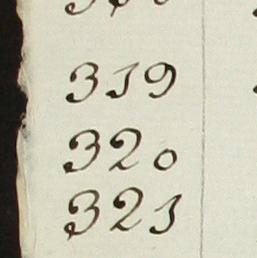 319
320
321